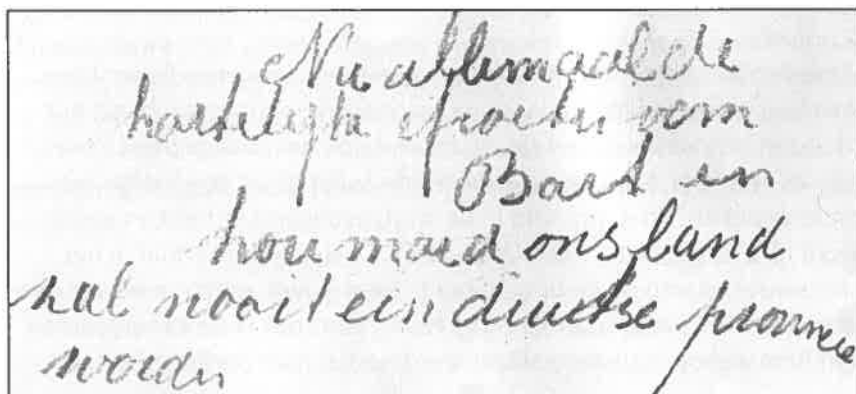 Nu allemaal de
hartelijke groeten van
Bart en
hou moed ons land
zal nooit ein duitse provincie
worden